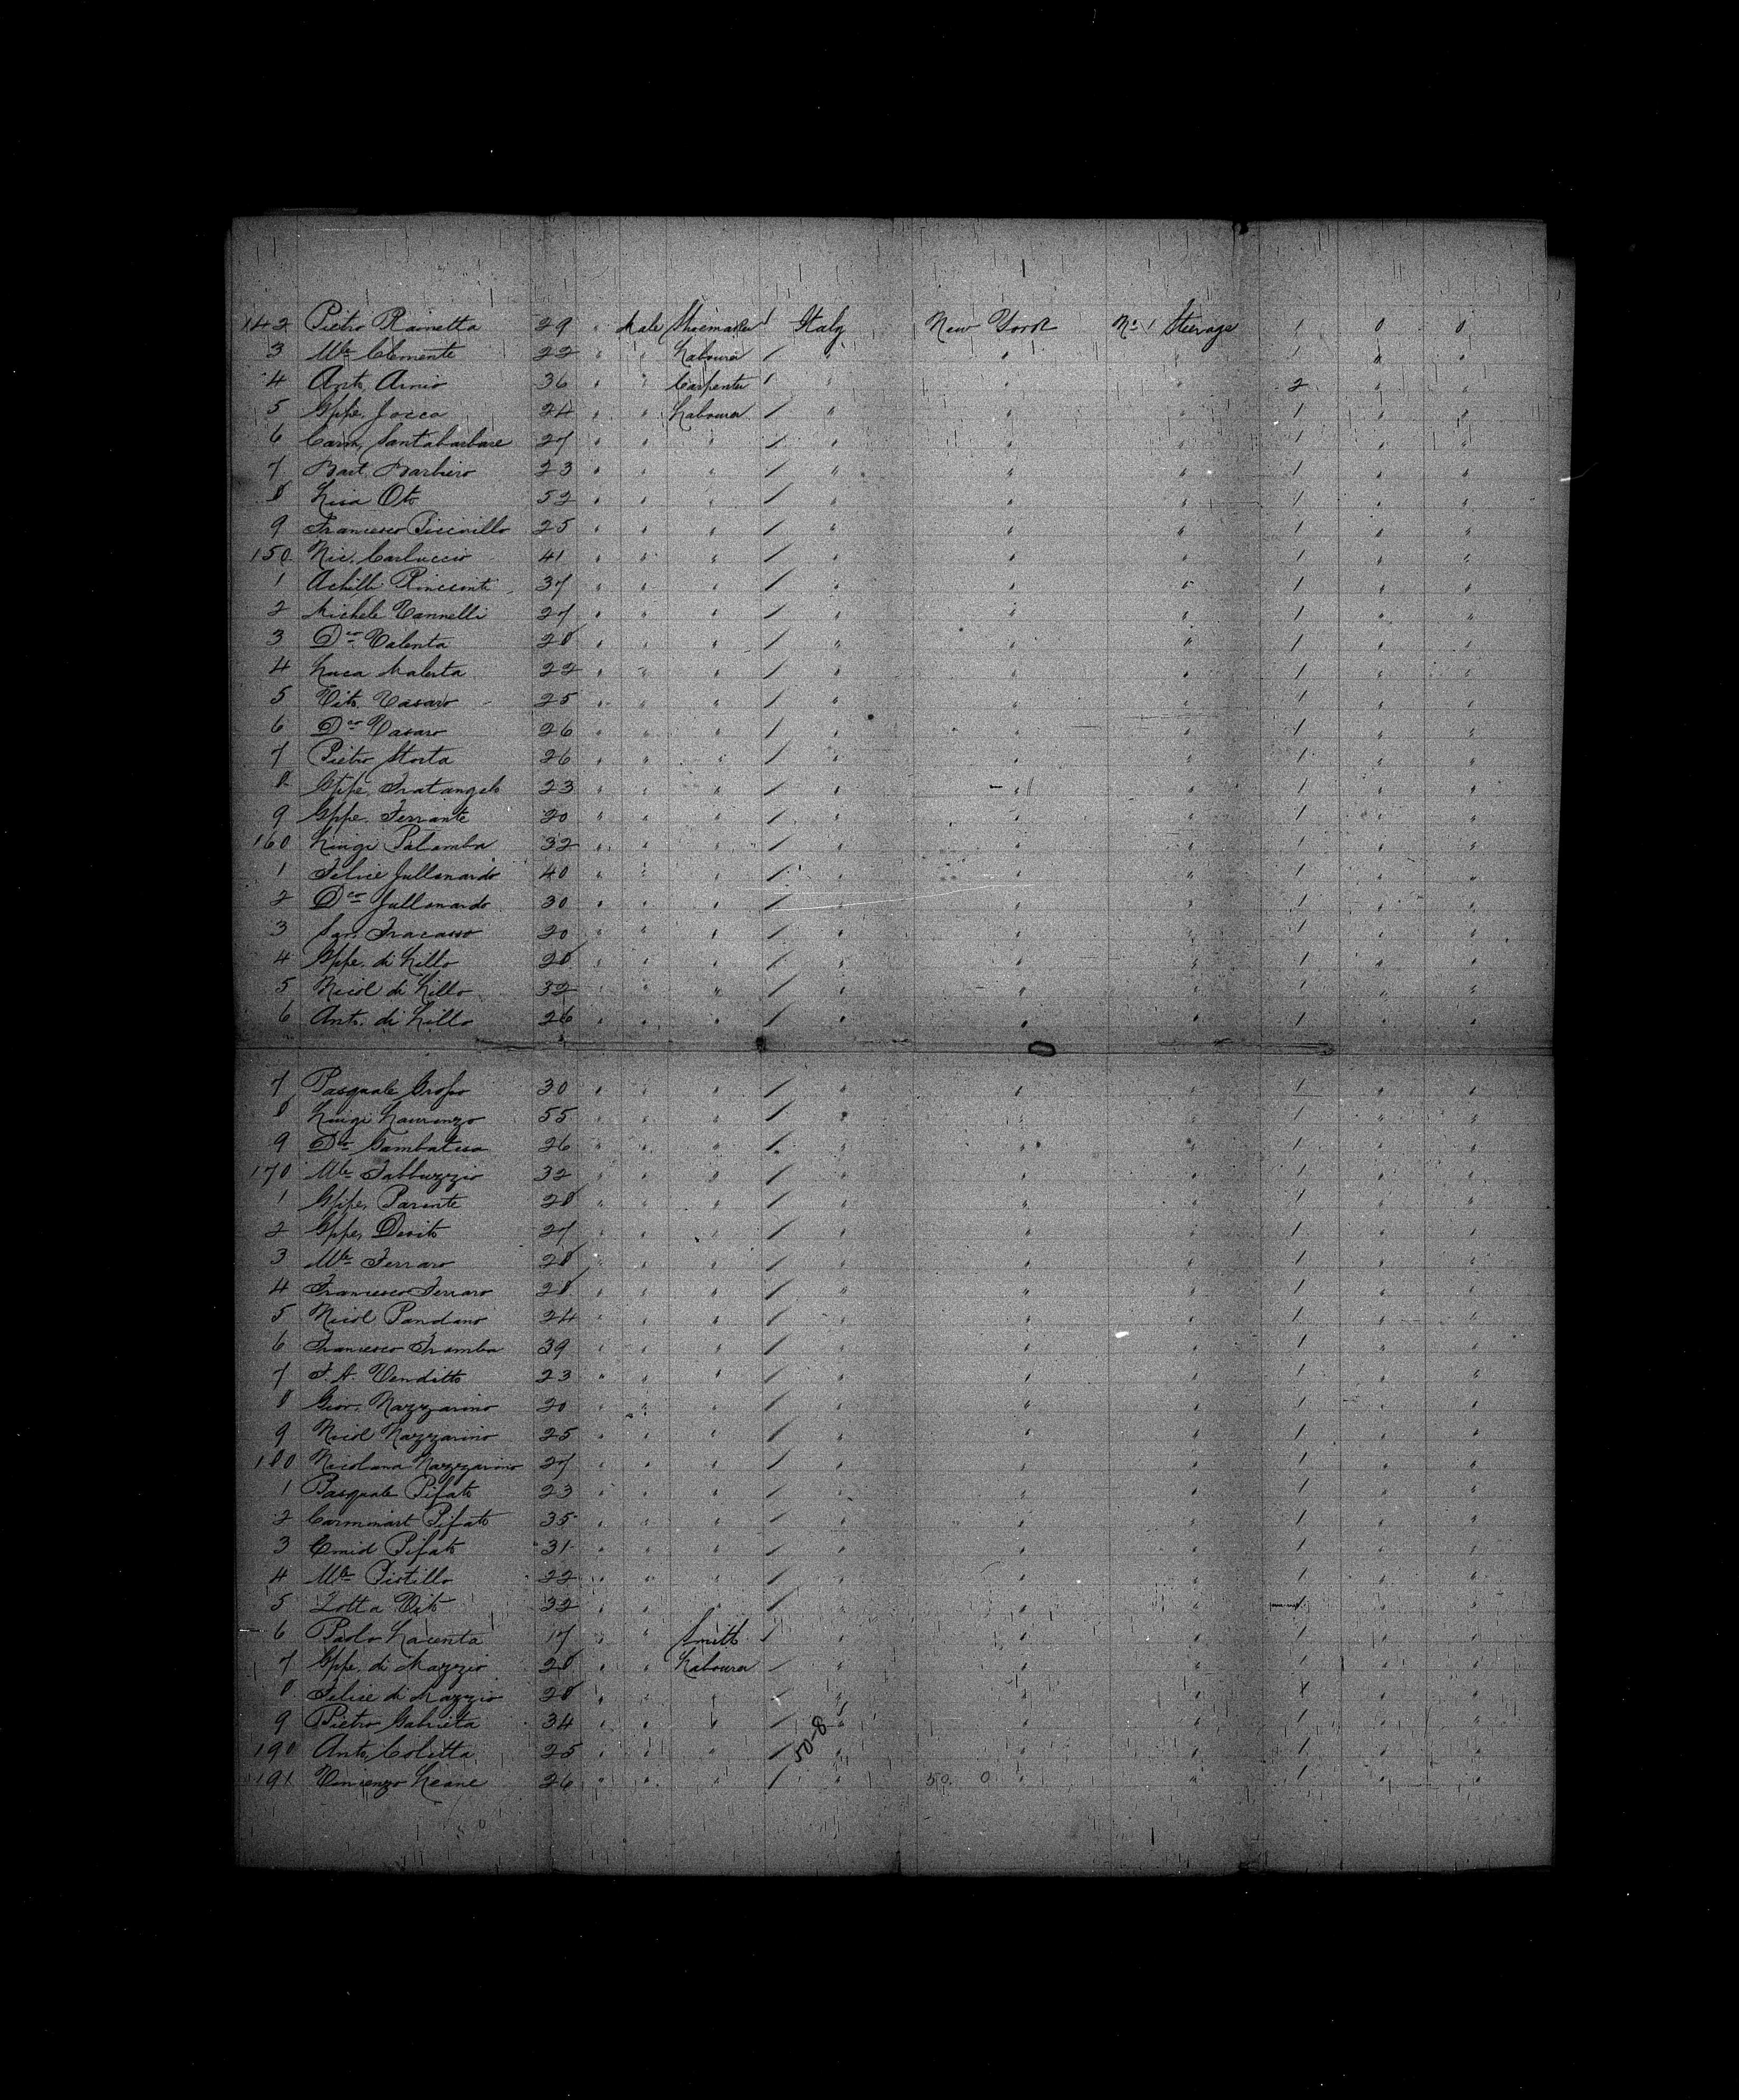 142 Pietro Rainetta 29 " Male Shoemaker / Italy New York No 1 Steerage 1 0 0
3 Mle Clemente 22 " " Labourer / " " " 1 " "
4 Anto Arnio 36 " " Carpenter / " " " 2 " "
5 Gppe. Jocca 24 " " Labourer / " " " 1 " "
6 Carm. Santabarbare 27 " " " / " " " 1 " "
7 Bart. Barbiero 23 " " " / " " " 1 " "
8 Lisa Oto 52 " " " / " " " 1 " "
9 Francesco Piccirillo 25 " " " / " " " 1 " "
150 Nic. Carluccio 41 " " " / " " " 1 " "
1 Achille 37 " " " / " " " 1 " "
2 Michele Vannelli 27 " " " / " " " 1 " "
3 Dco Valenta 28 " " " / " " " 1 " "
4 Luca Malerta 22 " " " / " " " 1 " "
5 Vito Vasaro 25 " " " / " " " 1 " "
6 Dco Vasaro 26 " " " / " " " 1 " "
7 Pietro Storta 26 " " " / " " " 1 " "
8 Gppe. Fratangelo 23 " " " / " " " 1 " "
9 Gppe. Ferrante 20 " " " / " " " 1 " "
160 Luigi Palamba 32 " " " / " " " 1 " "
1 Felice Jullanardo 40 " " " / " " " 1 " "
2 Dco Jullanardo 30 " " " / " " " 1 " "
3 San. Fracasso 20 " " " / " " " 1 " "
4 Gppe. di Lillo 28 " " " / " " " 1 " "
5 Nicol di Lillo 32 " " " / " " " 1 " "
6 Ant. di Lillo 26 " " " / " " " 1 " "
7 Pasquale 30 " " " / " " " 1 " "
8 Luigi Laurenzo 55 " " " / " " " 1 " "
9 Dco Gambatesa 26 " " " / " " " 1 " "
170 Mle Fabbuzzio 32 " " " / " " " 1 " "
1 Gppe. Parente 28 " " " / " " " 1 " "
2 Gppe. Devito 27 " " " / " " " 1 " "
3 Mle Ferraro 28 " " " / " " " 1 " "
4 Francesco Ferraro 28 " " " / " " " 1 " "
5 Nicol Pandano 24 " " " / " " " 1 " "
6 Francesco Framba 39 " " " / " " " 1 " "
7 F. A. Venditto 23 " " " / " " " 1 " "
8 Giov. Nazzarino 20 " " " / " " " 1 " "
9 Nicol Nazzarino 25 " " " / " " " 1 " "
180 Nicolana Nazzarino 27 " " " / " " " 1 " "
1 Pasquale Pifato 23 " " " / " " " 1 " "
2 Carminart Pifato 35 " " " / " " " 1 " "
3 Emid Pifato 31 " " " / " " " 1 " "
4 Mle Pistillo 22 " " " / " " " 1 " "
5 Zotta Vito 32 " " " / " " " 1 " "
6 Paolo Lacenta 17 " " Smith / " " " 1 " "
7 Gppe. di Mazzio 28 " " Labourer / " " " 1 " "
8 Felice di Mazzio 28 " " " / " " " 1 " "
9 Pietro Gabrieta 34 " " " / " " " 1 " "
190 Anto. Coletta 25 " " " / 50-8 " " " 1 " "
191 Vincenzo Leane 26 " " " / " 50. 0 " " 1 " "